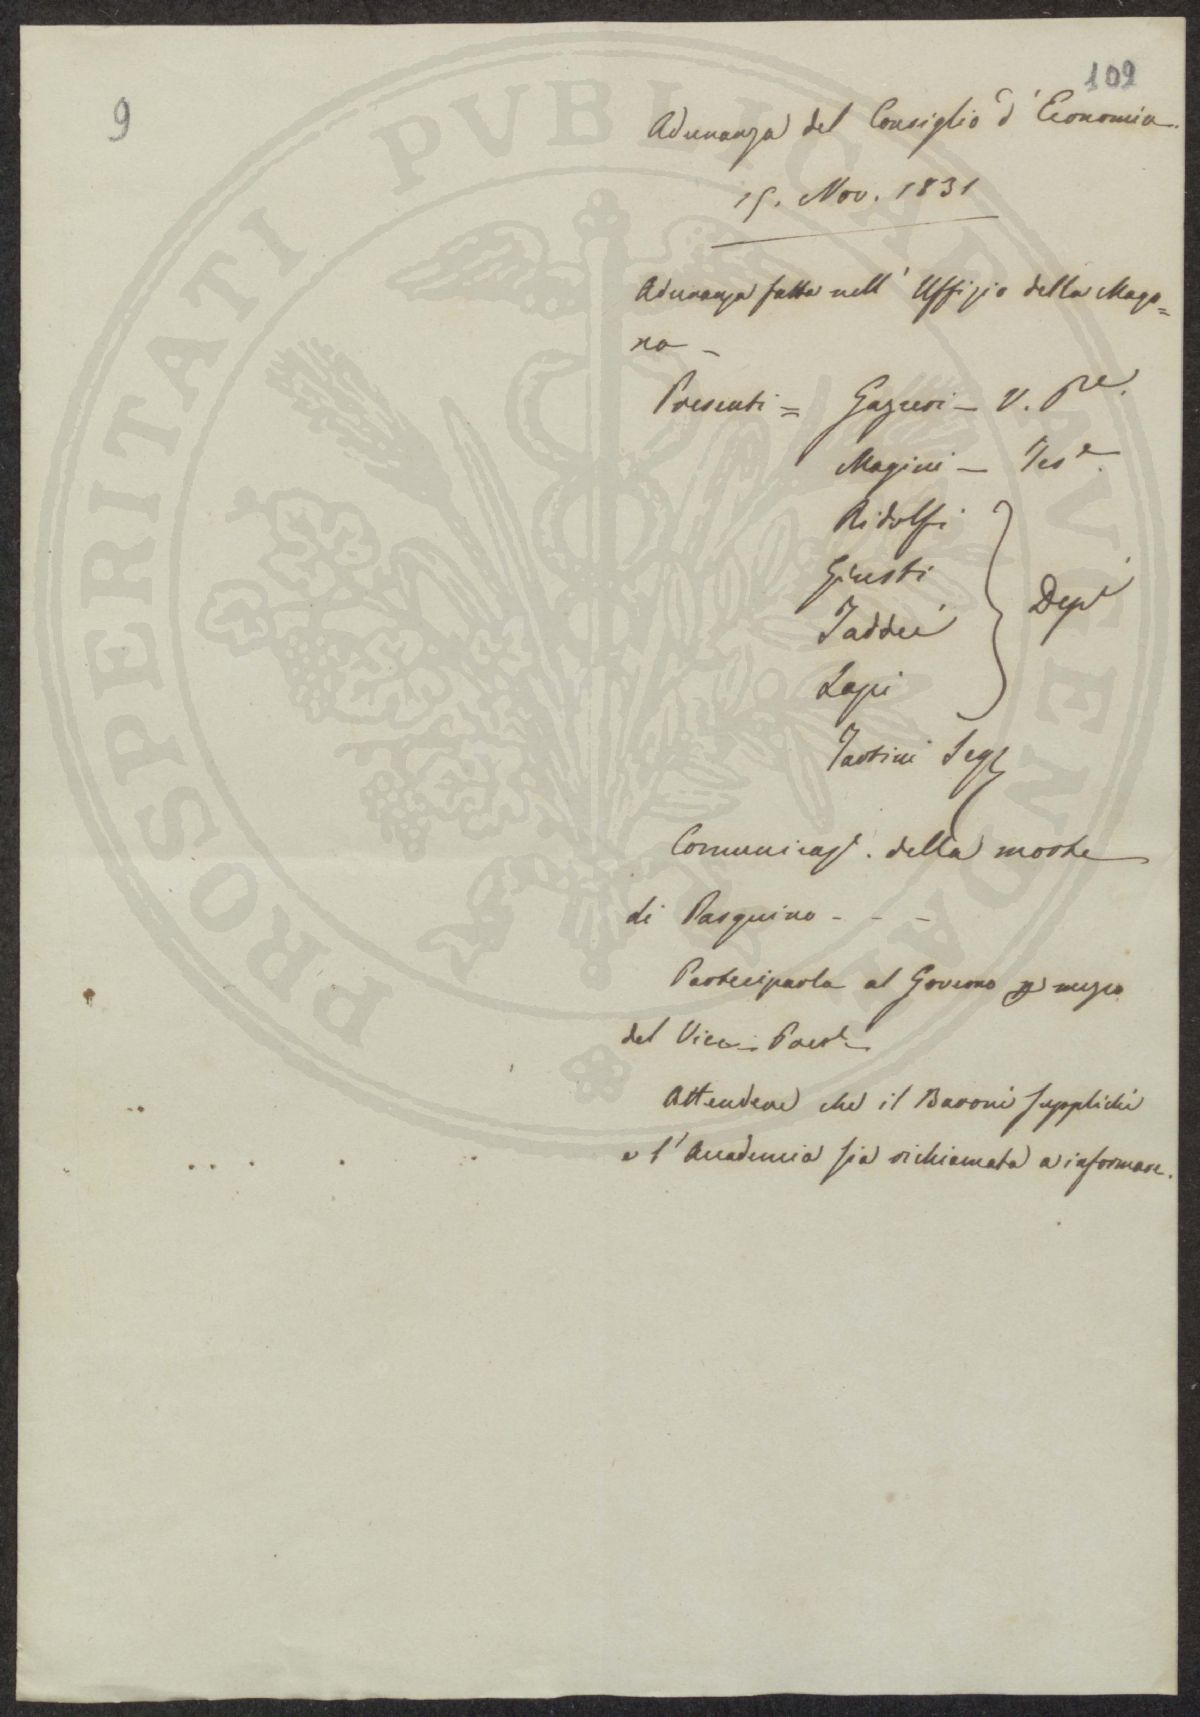 9
109
Adunanza del Consiglio d'Economia
15. Nov. 1831
Adunanza fatta nell'Uffizio della Mago=
na -
Presenti = Gazzeri - V. Pre.
Magini - Tes.e
Ridolfi
Giusti
Taddei
Lapi
Dep.i
Tartini Seg.
Comunicaz. della morte
di Pasquino - - -
Parteciparla al Governo p mezzo
del Vice-Pres.e
Attendere che il Baroni supplichi
e l'Accademia sia richiamata a informare.
PROSPERITATI PVBLICAE AVGENDAE